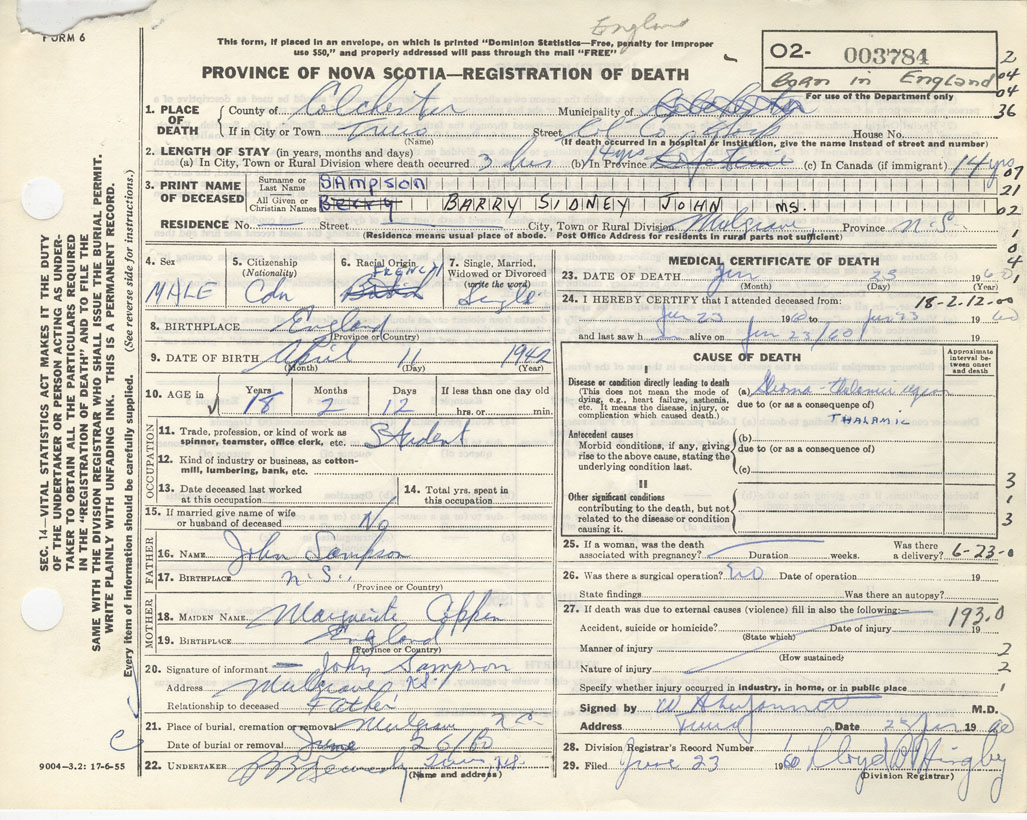 England
FORM 6
This form, if placed in an envelope, on which is printed "Dominion Statistics—Free, penalty for improper
use $50," and properly addressed will pass through the mail "FREE"
O2- 003784
Born in England
For use of the Department only
PROVINCE OF NOVA SCOTIA—REGISTRATION OF DEATH
2
04
04
36
1. PLACE OF DEATH County of Colchester Municipality of
If in City or Town Truro Street Col. Co. Hosp House No.
(Name) (If death occurred in a hospital or institution, give the name instead of street and number)
2. LENGTH OF STAY (in years, months and days)
(a) In City, Town or Rural Division where death occurred 3 hrs (b) In Province 14 yrs (c) In Canada (if immigrant) 14 yrs
07
21
02
3. PRINT NAME OF DECEASED Surname or Last Name SAMPSON
All Given or Christian Names BARRY SIDNEY JOHN MS.
RESIDENCE No. — Street City, Town or Rural Division Mulgrave Province N.S.
(Residence means usual place of abode. Post Office Address for residents in rural parts not sufficient)
1
0
4
1
SEC. 14—VITAL STATISTICS ACT MAKES IT THE DUTY
OF THE UNDERTAKER OR PERSON ACTING AS UNDER-
TAKER TO OBTAIN ALL THE PARTICULARS REQUIRED
IN THE "REGISTRATION OF DEATH" AND TO FILE THE
SAME WITH THE DIVISION REGISTRAR WHO SHALL ISSUE THE BURIAL PERMIT.
WRITE PLAINLY WITH UNFADING INK. THIS IS A PERMANENT RECORD.
Every item of information should be carefully supplied. (See reverse side for instructions.)
4. Sex MALE
5. Citizenship (Nationality) Cdn
6. Racial Origin FRENCH British
7. Single, Married, Widowed or Divorced (write the word) Single
8. BIRTHPLACE England
(Province or Country)
9. DATE OF BIRTH April 11 1942
(Month) (Day) (Year)
10. AGE in Years 18 Months 2 Days 12 If less than one day old
hrs. or min.
OCCUPATION
11. Trade, profession, or kind of work as
spinner, teamster, office clerk, etc. Student
12. Kind of industry or business, as cotton-
mill, lumbering, bank, etc.
13. Date deceased last worked
at this occupation
14. Total yrs. spent in
this occupation
15. If married give name of wife
or husband of deceased No
FATHER
16. NAME John Sampson
17. BIRTHPLACE N.S.
(Province or Country)
MOTHER
18. MAIDEN NAME Marguerite Coppin
19. BIRTHPLACE England
(Province or Country)
20. Signature of informant John Sampson
Address Mulgrave, N.S.
Relationship to deceased Father
21. Place of burial, cremation or removal Mulgrave N.S.
Date of burial or removal June 26/60
22. UNDERTAKER Truro N.S.
(Name and address)
9004—3.2: 17-6-55
MEDICAL CERTIFICATE OF DEATH
23. DATE OF DEATH Jun 23 1960
(Month) (Day) (Year)
24. I HEREBY CERTIFY that I attended deceased from: 18-2-12-00
Jun 23 1960 to Jun 23 1960
and last saw h alive on Jun 23/60 19
CAUSE OF DEATH
Approximate interval between onset and death
I
Disease or condition directly leading to death
(This does not mean the mode of dying, e.g., heart failure, asthenia, etc. It means the disease, injury, or complication which caused death.)
(a)
due to (or as a consequence of)
THALAMIC
Antecedent causes
Morbid conditions, if any, giving rise to the above cause, stating the underlying condition last.
(b)
due to (or as a consequence of)
(c)
II
Other significant conditions
contributing to the death, but not related to the disease or condition causing it.
3
1
3
25. If a woman, was the death
associated with pregnancy? Duration weeks. Was there a delivery? 6-23-0
26. Was there a surgical operation? No Date of operation 19
State findings Was there an autopsy?
27. If death was due to external causes (violence) fill in also the following:—
193.0
Accident, suicide or homicide? Date of injury 19
(State which)
Manner of injury 2
(How sustained)
Nature of injury 2
Specify whether injury occurred in industry, in home, or in public place 1
Signed by M.D.
Address Truro Date 23 Jun 1960
28. Division Registrar's Record Number
29. Filed June 23 1960 Lloyd
(Division Registrar)